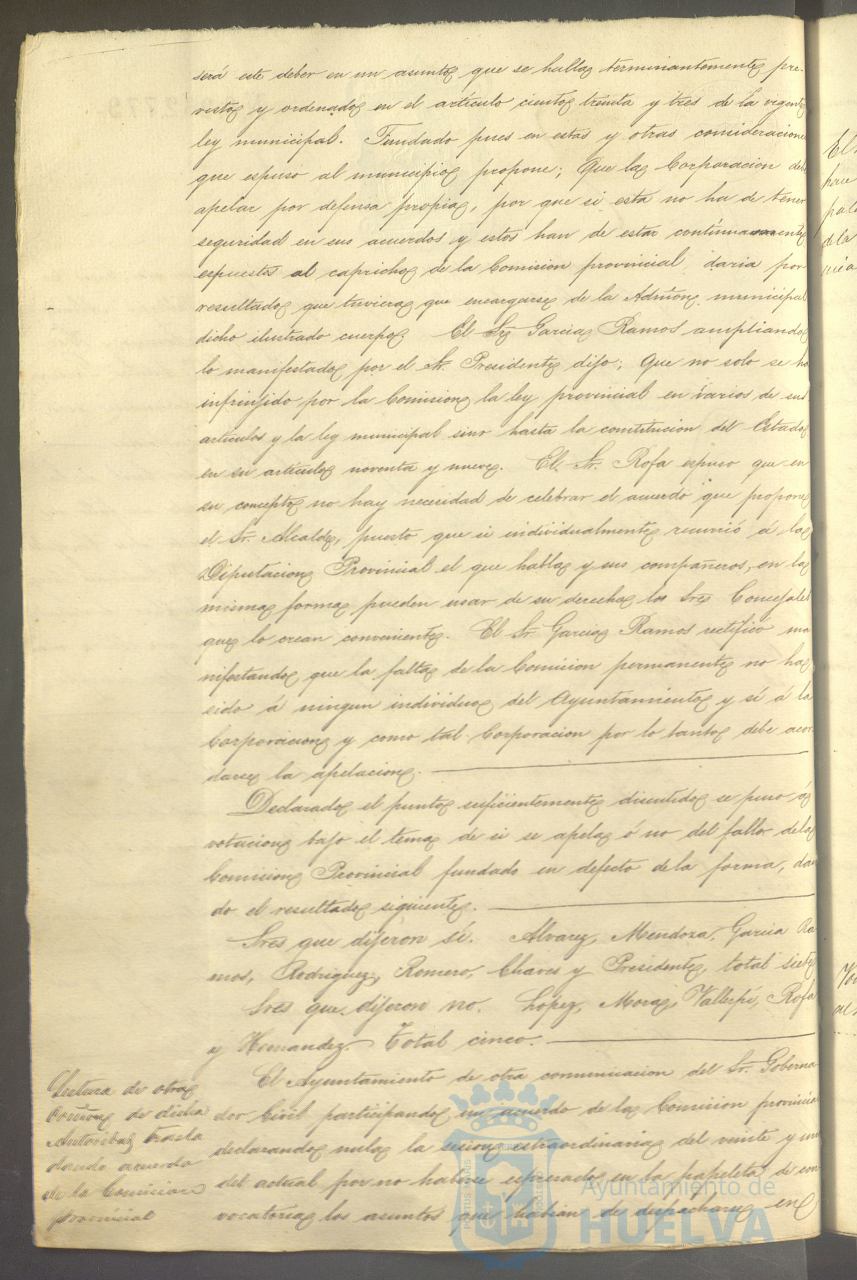 será este deber en un asunto que se halla terminantemente pre-
visto y ordenado en el artículo ciento treinta y tres de la vigente
ley municipal. Fundado pues en estas y otras consideracione
que espuso al municipio propone; Que la Corporacion debe
apelar por defensa propia, por que si esta no ha de tener
seguridad en sus acuerdos y estos han de estar continuamente
espuestos al capricho de la Comision provincial, daria por
resultado que tuviera que encargarse de la Admon. municipal
dicho ilustrado cuerpo. El Sr. Garcia Ramos ampliando
lo manifestado por el Sr. Presidente dijo; Que no solo se ha
infrinjido por la Comision la ley provincial en varios de sus
artículos y la ley municipal sino hasta la constitucion del Estado
en su artículo noventa y nueve. El Sr. Rofa espuso que en
su concepto no hay necesidad de celebrar el acuerdo que propone
el Sr. Alcalde, puesto que si individualmente recurrió á la
Diputacion Provincial el que habla y sus compañeros, en la
misma forma pueden usar de su derecho los Sres Concejales
que lo crean conveniente. El Sr. Garcia Ramos rectificó ma
nifestando que la falta de la Comision permanente no ha
sido á ningun individuo del Ayuntamiento y sí á la
Corporacion y como tal Corporacion por lo tanto debe acor
darse la apelacion.
Declarado el punto suficientemente discutido se puso á
votacion bajo el tema de si se apela ó no del fallo de la
Comision Provincial fundado en defecto de la forma, dan
do el resultado siguiente.
Sres que dijeron sí. Alvarez, Mendoza, Garcia Ra
mos, Rodriguez, Romero, Chaves y Presidente, total siete
Sres que dijeron no. Lopez, Mora, Vallespí, Rofa
y Hernandez. Total cinco.
Lectura de otra
de dicha
Autoridad trasla
dando acuerdo
de la Comision
provincial
El Ayuntamiento de otra comunicacion del Sr. Goberna
dor Civil participando un acuerdo de la Comision provincia
declarando nula la sesion estraordinaria del veinte y un
del actual por no haberse espresado en la papeleta de con
vocatoria los asuntos que habian de despacharse en
Ayuntamiento de
HUELVA